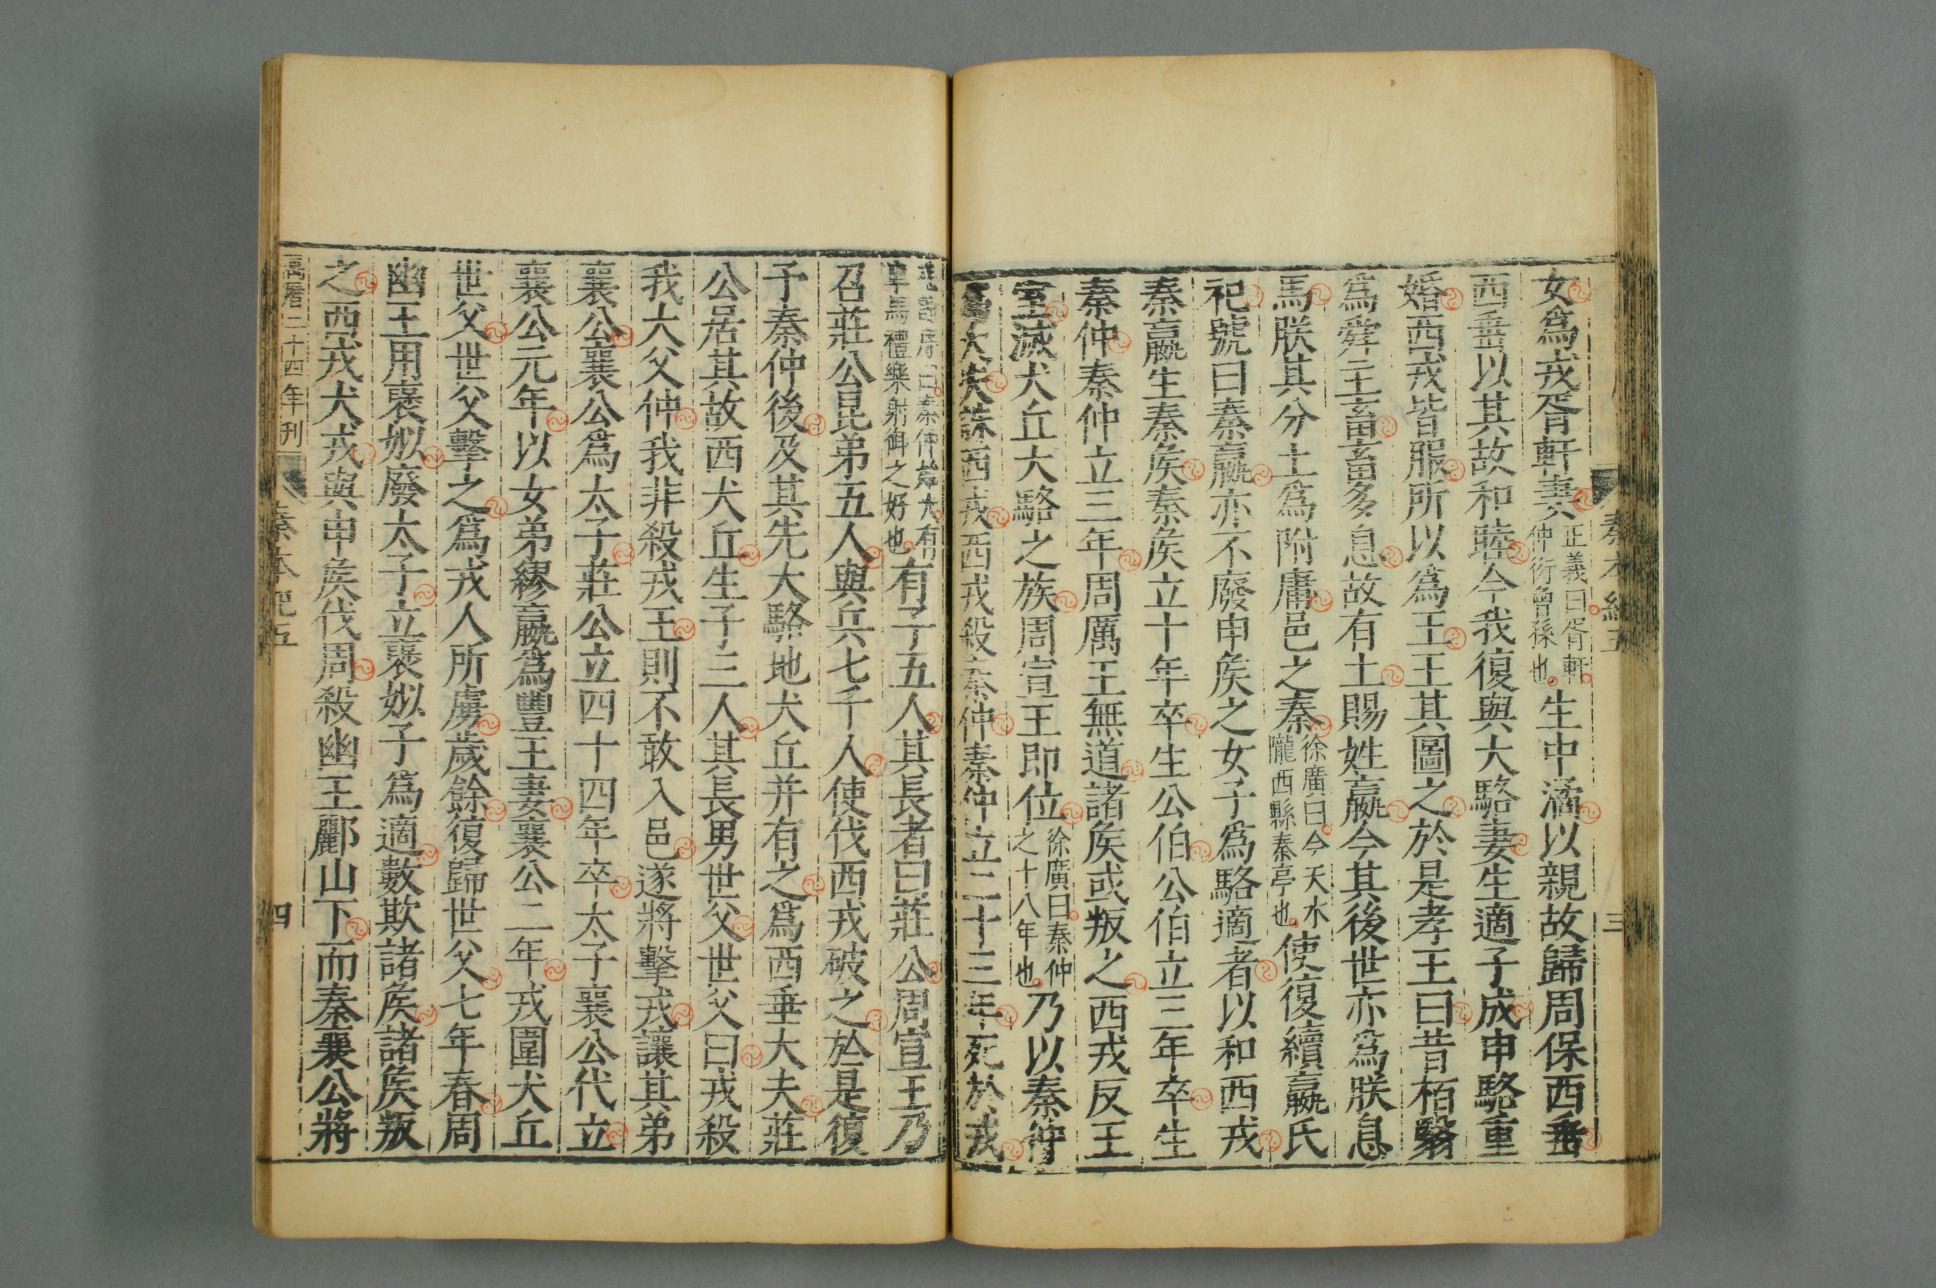 秦本紀五
三
女爲戎胥軒妻正義曰胥軒仲衍曾孫也生中潏以親故歸周保西垂
西垂以其故和睦今我復與大駱妻生適子成申駱重
婚西戎皆服所以爲王王其圖之於是孝王曰昔栢翳
爲舜主畜畜多息故有土賜姓嬴今其後世亦爲朕息
馬朕其分土爲附庸邑之秦徐廣曰今天水隴西縣秦亭也使復續嬴氏
祀號曰秦嬴亦不廢申矦之女子爲駱適者以和西戎
秦嬴生秦矦秦矦立十年卒生公伯公伯立三年卒生
秦仲秦仲立三年周厲王無道諸矦或叛之西戎反王
室滅犬丘大駱之族周宣王即位徐廣曰秦仲之十八年也乃以秦仲
爲大夫誅西戎西戎殺秦仲秦仲立二十三年死於戎
曰秦仲始大有車馬禮樂射御之好也有子五人其長者曰莊公周宣王乃
召莊公昆弟五人與兵七千人使伐西戎破之於是復
予秦仲後及其先大駱地犬丘并有之爲西垂大夫莊
公居其故西犬丘生子三人其長男世父世父曰戎殺
我大父仲我非殺戎王則不敢入邑遂將擊戎讓其弟
襄公襄公爲太子莊公立四十四年卒太子襄公代立
襄公元年以女弟繆嬴爲豐王妻襄公二年戎圍犬丘
世父世父擊之爲戎人所虜歲餘復歸世父七年春周
幽王用褒姒廢太子立褒姒子爲適數欺諸矦諸矦叛
之西戎犬戎與申矦伐周殺幽王酈山下而秦襄公將
萬曆二十四年刊
秦本紀五
四